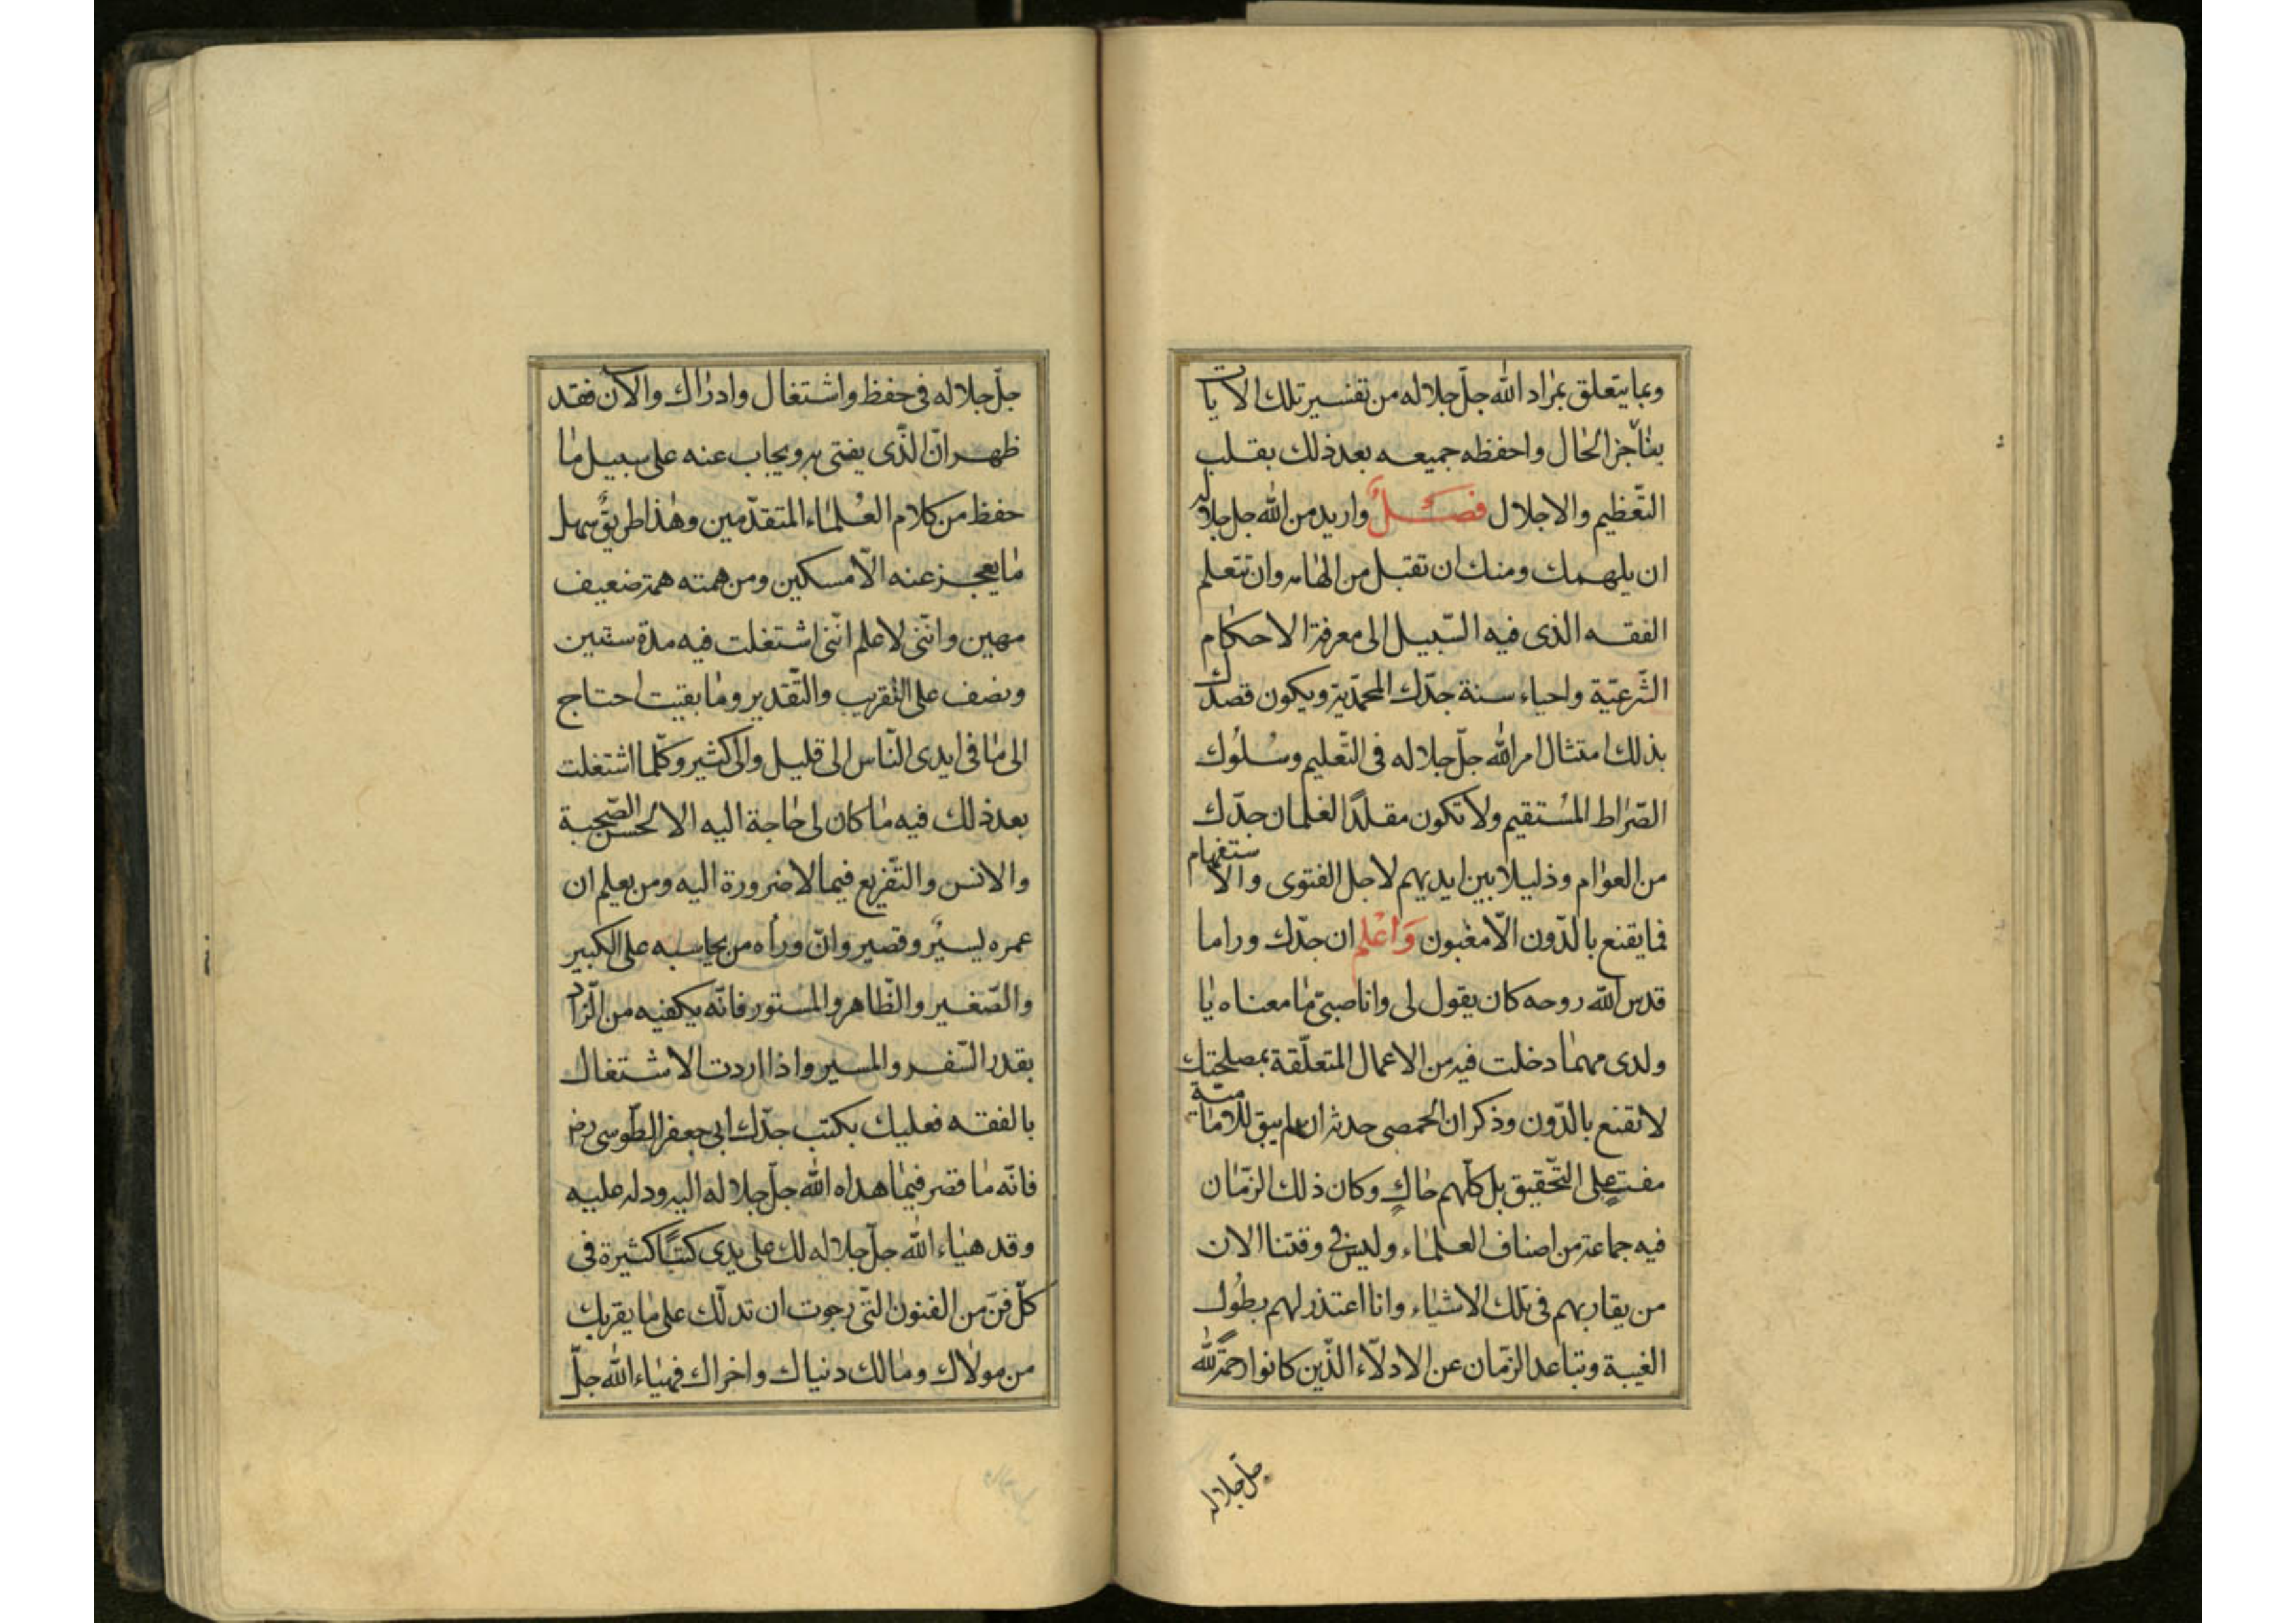 وبما يتعلق بمراد الله جلّ جلاله من تفسير تلك الايات
بناجز الحال واحفظه جميعه بعد ذلك بقلب
التّعظيم والاجلال فصل واريد من الله جل جلاله
ان يلهمك ومنك ان تقبل من الهامه وان تتعلم
الفقه الذى فيه السّبيل الى معرفة الاحكام
الشّرعيّة واحياء سنة جدّك المحمّدية ويكون قصدك
بذلك امتثال امر الله جلّ جلاله فى التّعليم وسُلُوك
الصّراط المُستقيم ولا تكون مقلدًا لغلمان جدّك
من العوام وذليلا بين ايديهم لاجل الفتوى والاستفهام
فما يقنع بالدّون الّا مغبون وَاعْلم ان جدّك وراما
قدس الله روحه كان يقول لى وانا صبىّ ما معناه يا
ولدى مهما دخلت فيه من الاعمال المتعلّقة بمصلحتك
لا تقنع بالدّون وذكر ان الحمصى حدثه انه لم يبق للامامية
مفتٍ على التّحقيق بل كلّهم حاكٍ وكان ذلك الزّمان
فيه جماعة من اصناف العلماء وليس فى وقتنا الان
من يقاربهم فى تلك الاشياء وانا اعتذر لهم بطُول
الغيبة وتباعد الزّمان عن الادلّاء الّذين كانوا رحمة الله
جلّ جلاله
جلّ جلاله فى حفظ واشتغال وادراك والآن فقد
ظهر انّ الّذى يفتى به ويجاب عنه على سبيل ما
حفظ من كلام العُلماء المتقدّمين وهذا طريقٌ سهل
ما يعجز عنه الّا مسكين ومن همته همة ضعيف
مهين وانّنى لاعلم انّنى اشتغلت فيه مدة سنتين
ونصف على التّقريب والتّقدير وما بقيت احتاج
الى ما فى ايدى النّاس الى قليل والى كثير وكلّما اشتغلت
بعد ذلك فيه ما كان لى حاجة اليه الا لحسن الصّحبة
والانس والتّفريع فيما لا ضرورة اليه ومن يعلم ان
عمره يسيرٌ وقصير وانّ وراه من يحاسبه على الكبير
والصّغير والظّاهر والمستور فانّه يكفيه من الزّاد
بقدر السّفر والمسير واذا اردت الاشتغال
بالفقه فعليك بكتب جدّك ابى جعفر الطّوسى رض
فانّه ما قصر فيما هداه الله جلّ جلاله اليه ودله عليه
وقد هياء الله جلّ جلاله لك على يدى كتبًا كثيرة فى
كلّ فنّ من الفنون الّتى رجوت ان تدلّك على ما يقربك
من مولاك ومالك دنياك واخراك فهياء الله جلّ